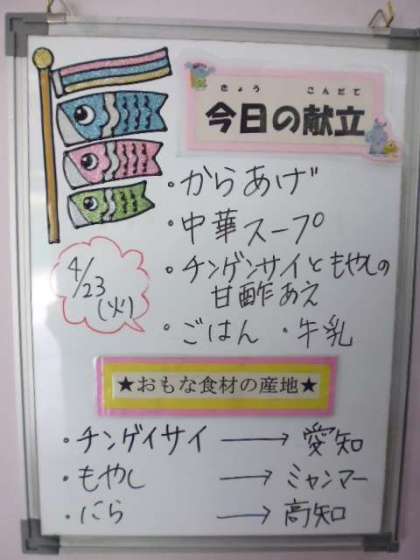 きょう こんだて
今日の献立
・からあげ
・中華スープ
・チンゲンサイともやしの
甘酢あえ
4/23
(火)
・ごはん ・牛乳
★おもな食材の産地★
・チンゲイサイ → 愛知
・もやし → ミャンマー
・にら → 高知